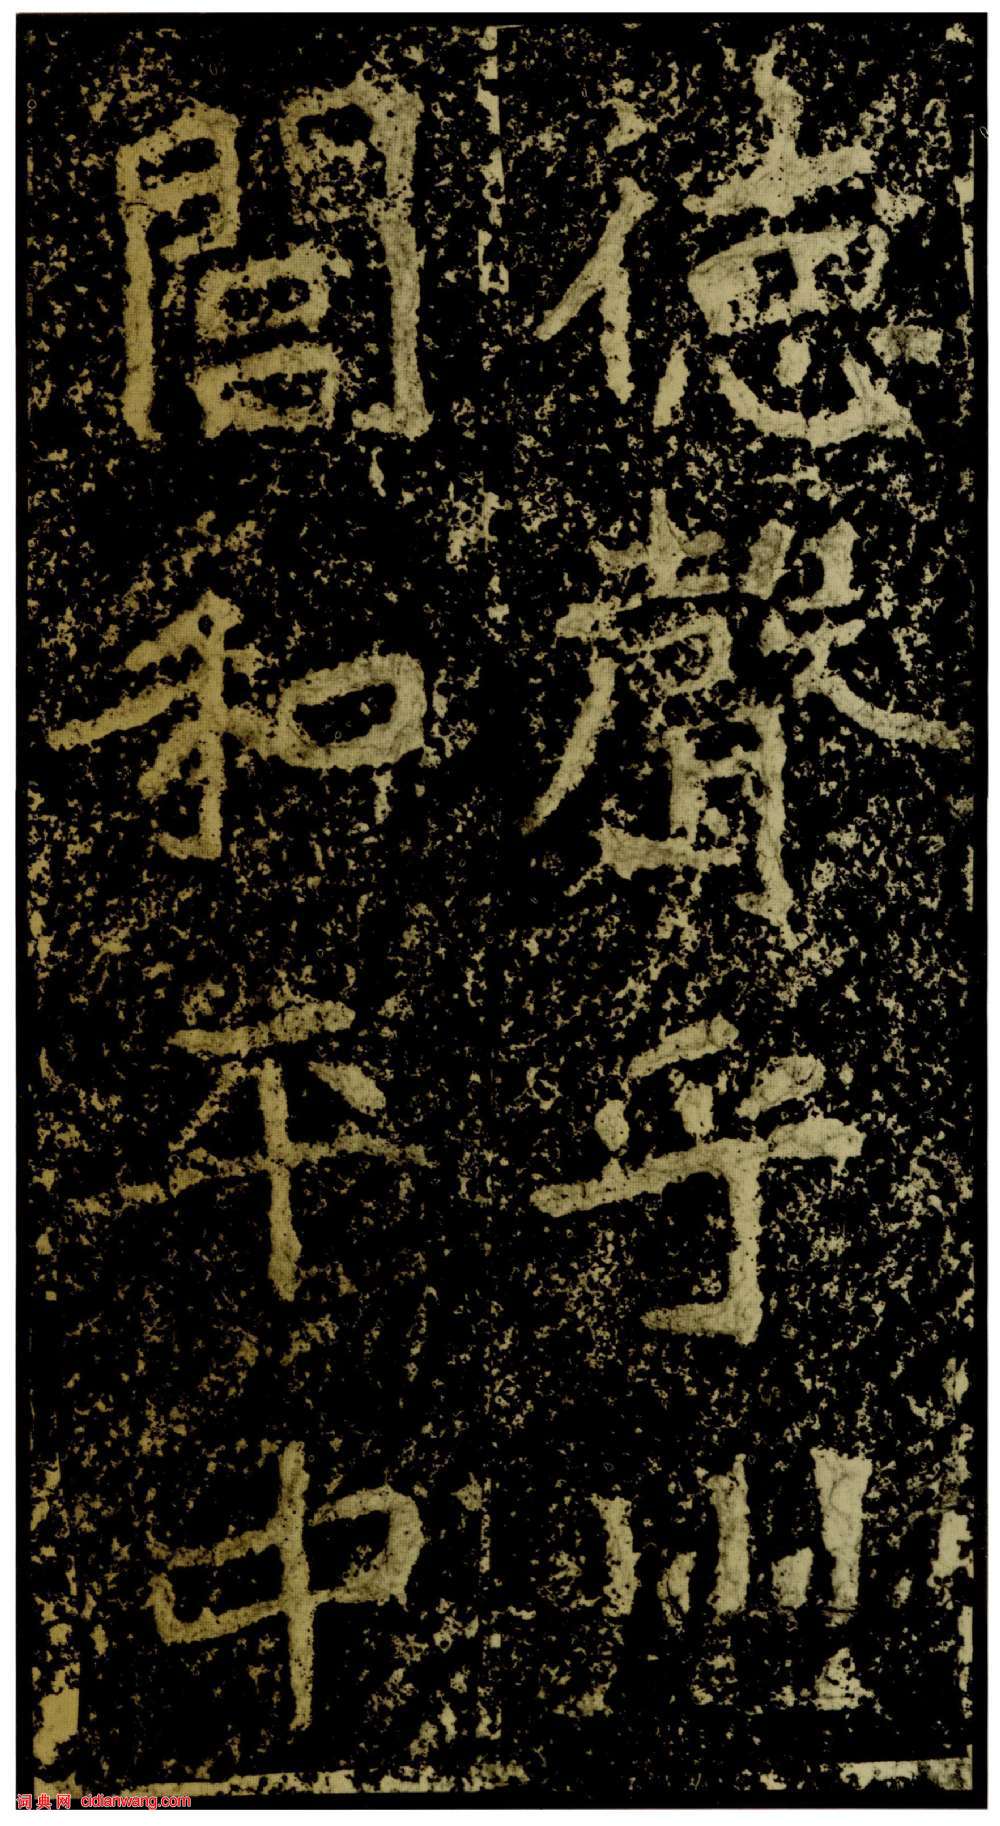 德聲孚州
閭和平中
词典网 cidianwang.com